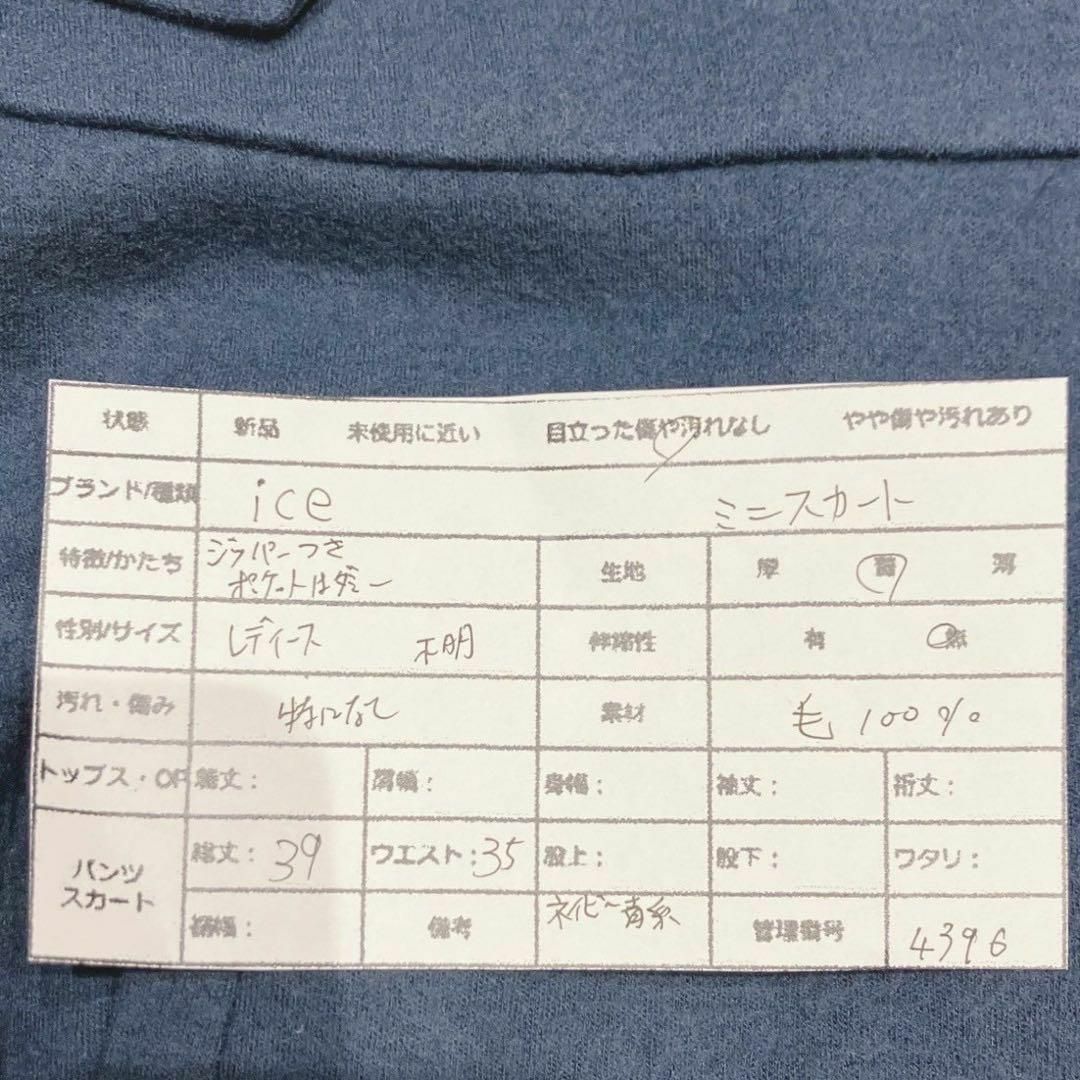 状態 新品 未使用に近い 目立った傷や汚れなし やや傷や汚れあり
ブランド/種類 ice ミニスカート
特徴/かたち ジッパーつき
ポケットはダミー
生地 厚 普 薄
性別/サイズ レディース 不明 伸縮性 有 無
汚れ・傷み 特になし 素材 毛 100%
トップス・OP 着丈: 肩幅: 身幅: 袖丈: 裄丈:
パンツ
スカート
総丈: 39 ウエスト: 35 股上: 股下: ワタリ:
裾幅: 備考 ネイビー青系 管理番号 4396